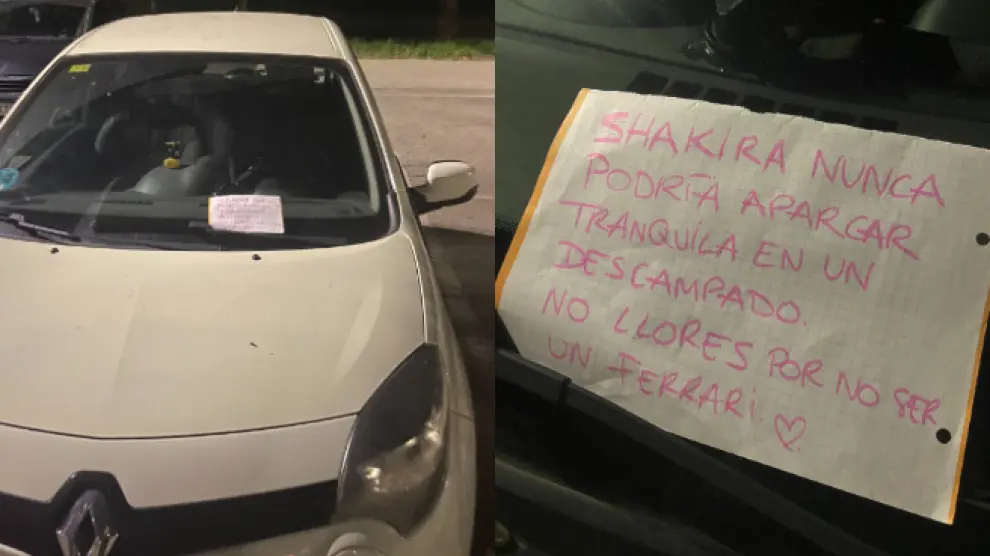 SHAKIRA NUNCA
PODRÍA APARGAR
TRANQUILA EN UN
DESCAMPADO.
NO LLORES POR NO SER
UN FERRARI.